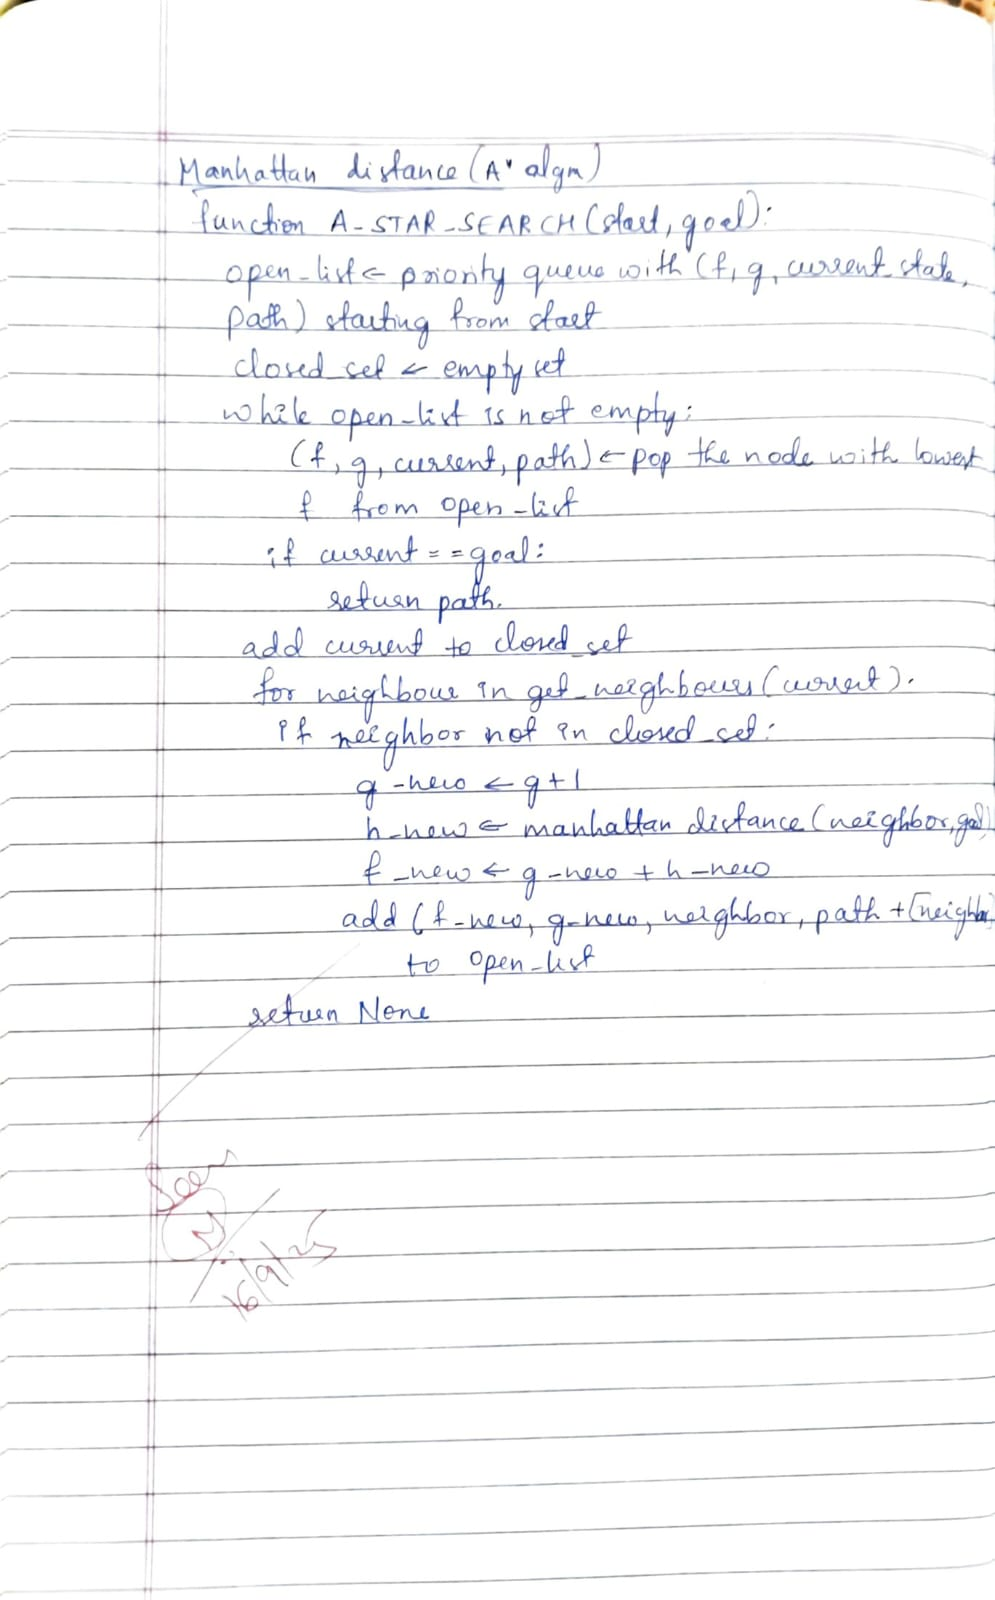 Manhattan distance (A* algm)
function A-STAR-SEARCH (start, goal):
open-list ← priority queue with (f, g, current state,
path) starting from start
closed_set ← empty set
while open-list is not empty:
(f, g, current, path) ← pop the node with lowest
f from open-list
if current == goal:
return path.
add current to closed_set
for neighbour in get_neighbours (current).
if neighbor not in closed_set:
g-new ← g+1
h-new ← manhattan distance (neighbor, goal)
f-new ← g-new + h-new
add (f-new, g-new, neighbor, path + [neighbor]
to open-list
return None
Seen
16/9/25